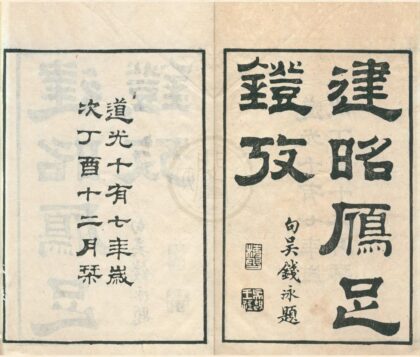 建昭鴈足
鐙攷
句吳錢泳題
道光十有七年歲
次丁酉十二月栞